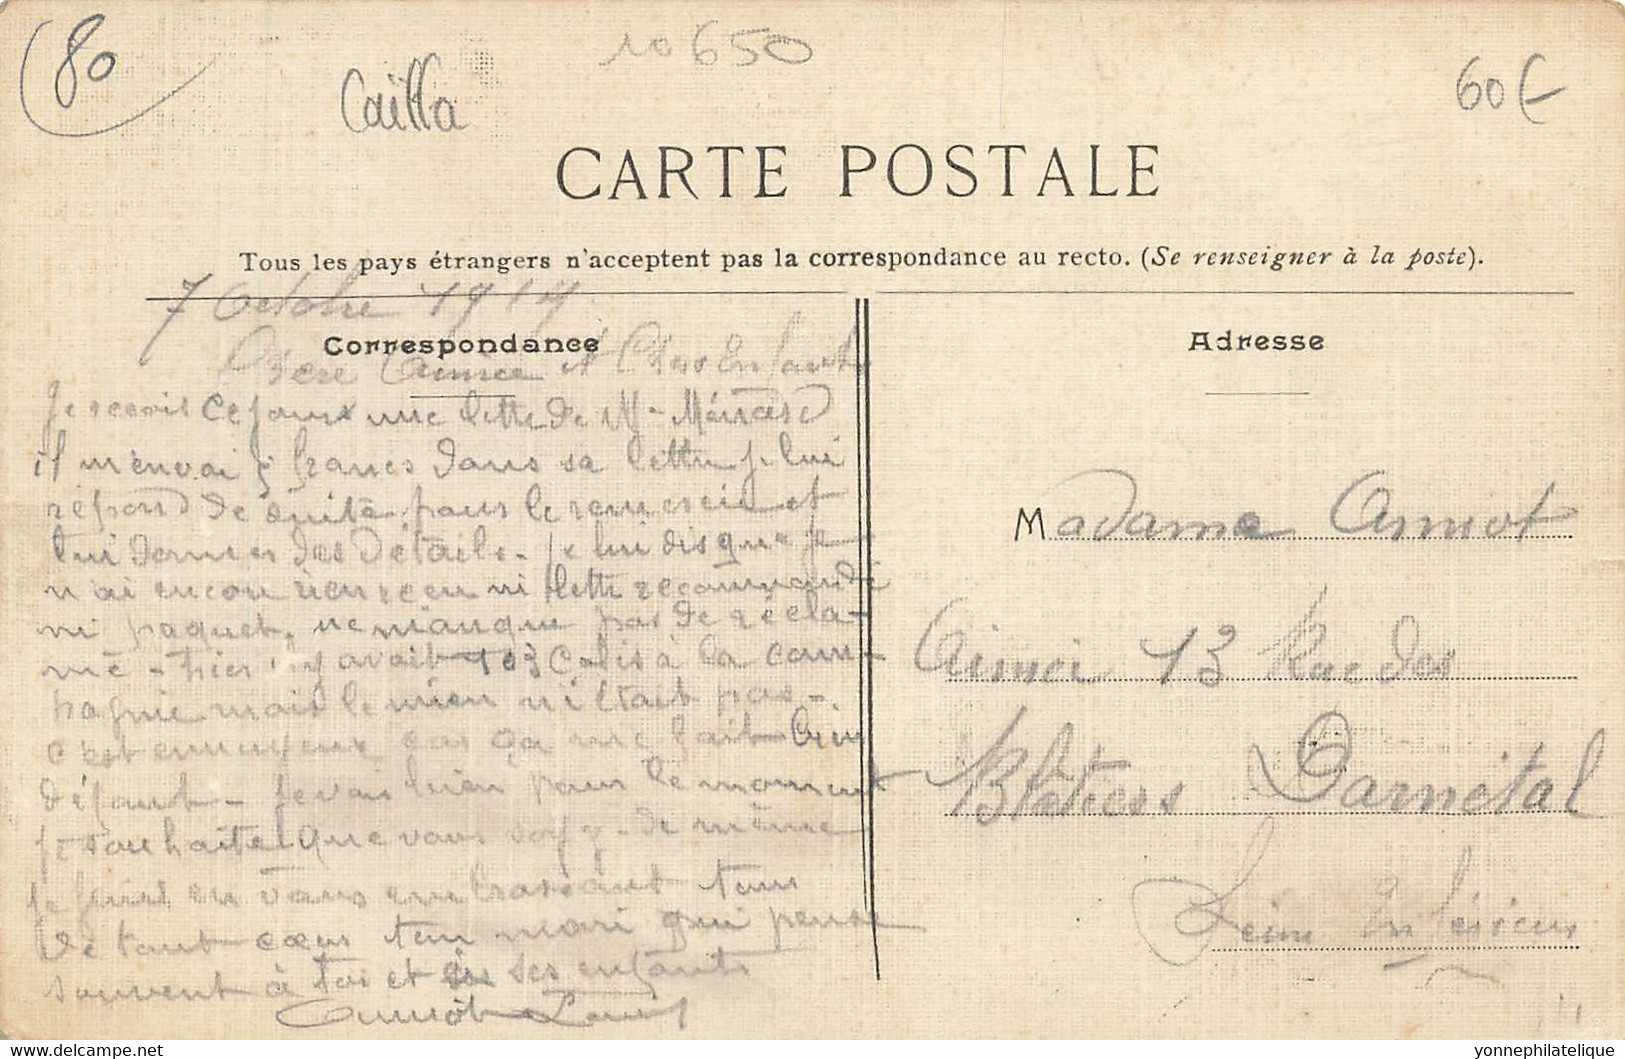 80
Cailla
10650
60€
CARTE POSTALE
Tous les pays étrangers n'acceptent pas la correspondance au recto. (Se renseigner à la poste).
7 Octobre 1914
Correspondance
Chère Aimée et Chers Enfants
Je recois ce jour une lettre de Mr
il m'envoi 5 francs dans sa lettre je lui
répond de suite pour le remercie et
lui donner des détails. Je lui dis que je
n'ai encore rien reçu ni lettre recommandé
ni paquet, ne manque pas de récla-
mé - hier il y avait 103 Colis à la com-
pagnie mais le mien n'i était pas -
c'est ennuyeux car ça me fait bien
défaut - Je vais bien pour le moment
je souhaite que vous soyez de même
Je finis en vous embrassant tous
de tout cœur ton mari qui pense
souvent à toi et à ses enfants
Amiot Louis
Adresse
Madame Amiot
Aimée 13 Rue des
Blatiers Darnétal
Seine Inférieur
Delcampe.net
yonnephilatelique